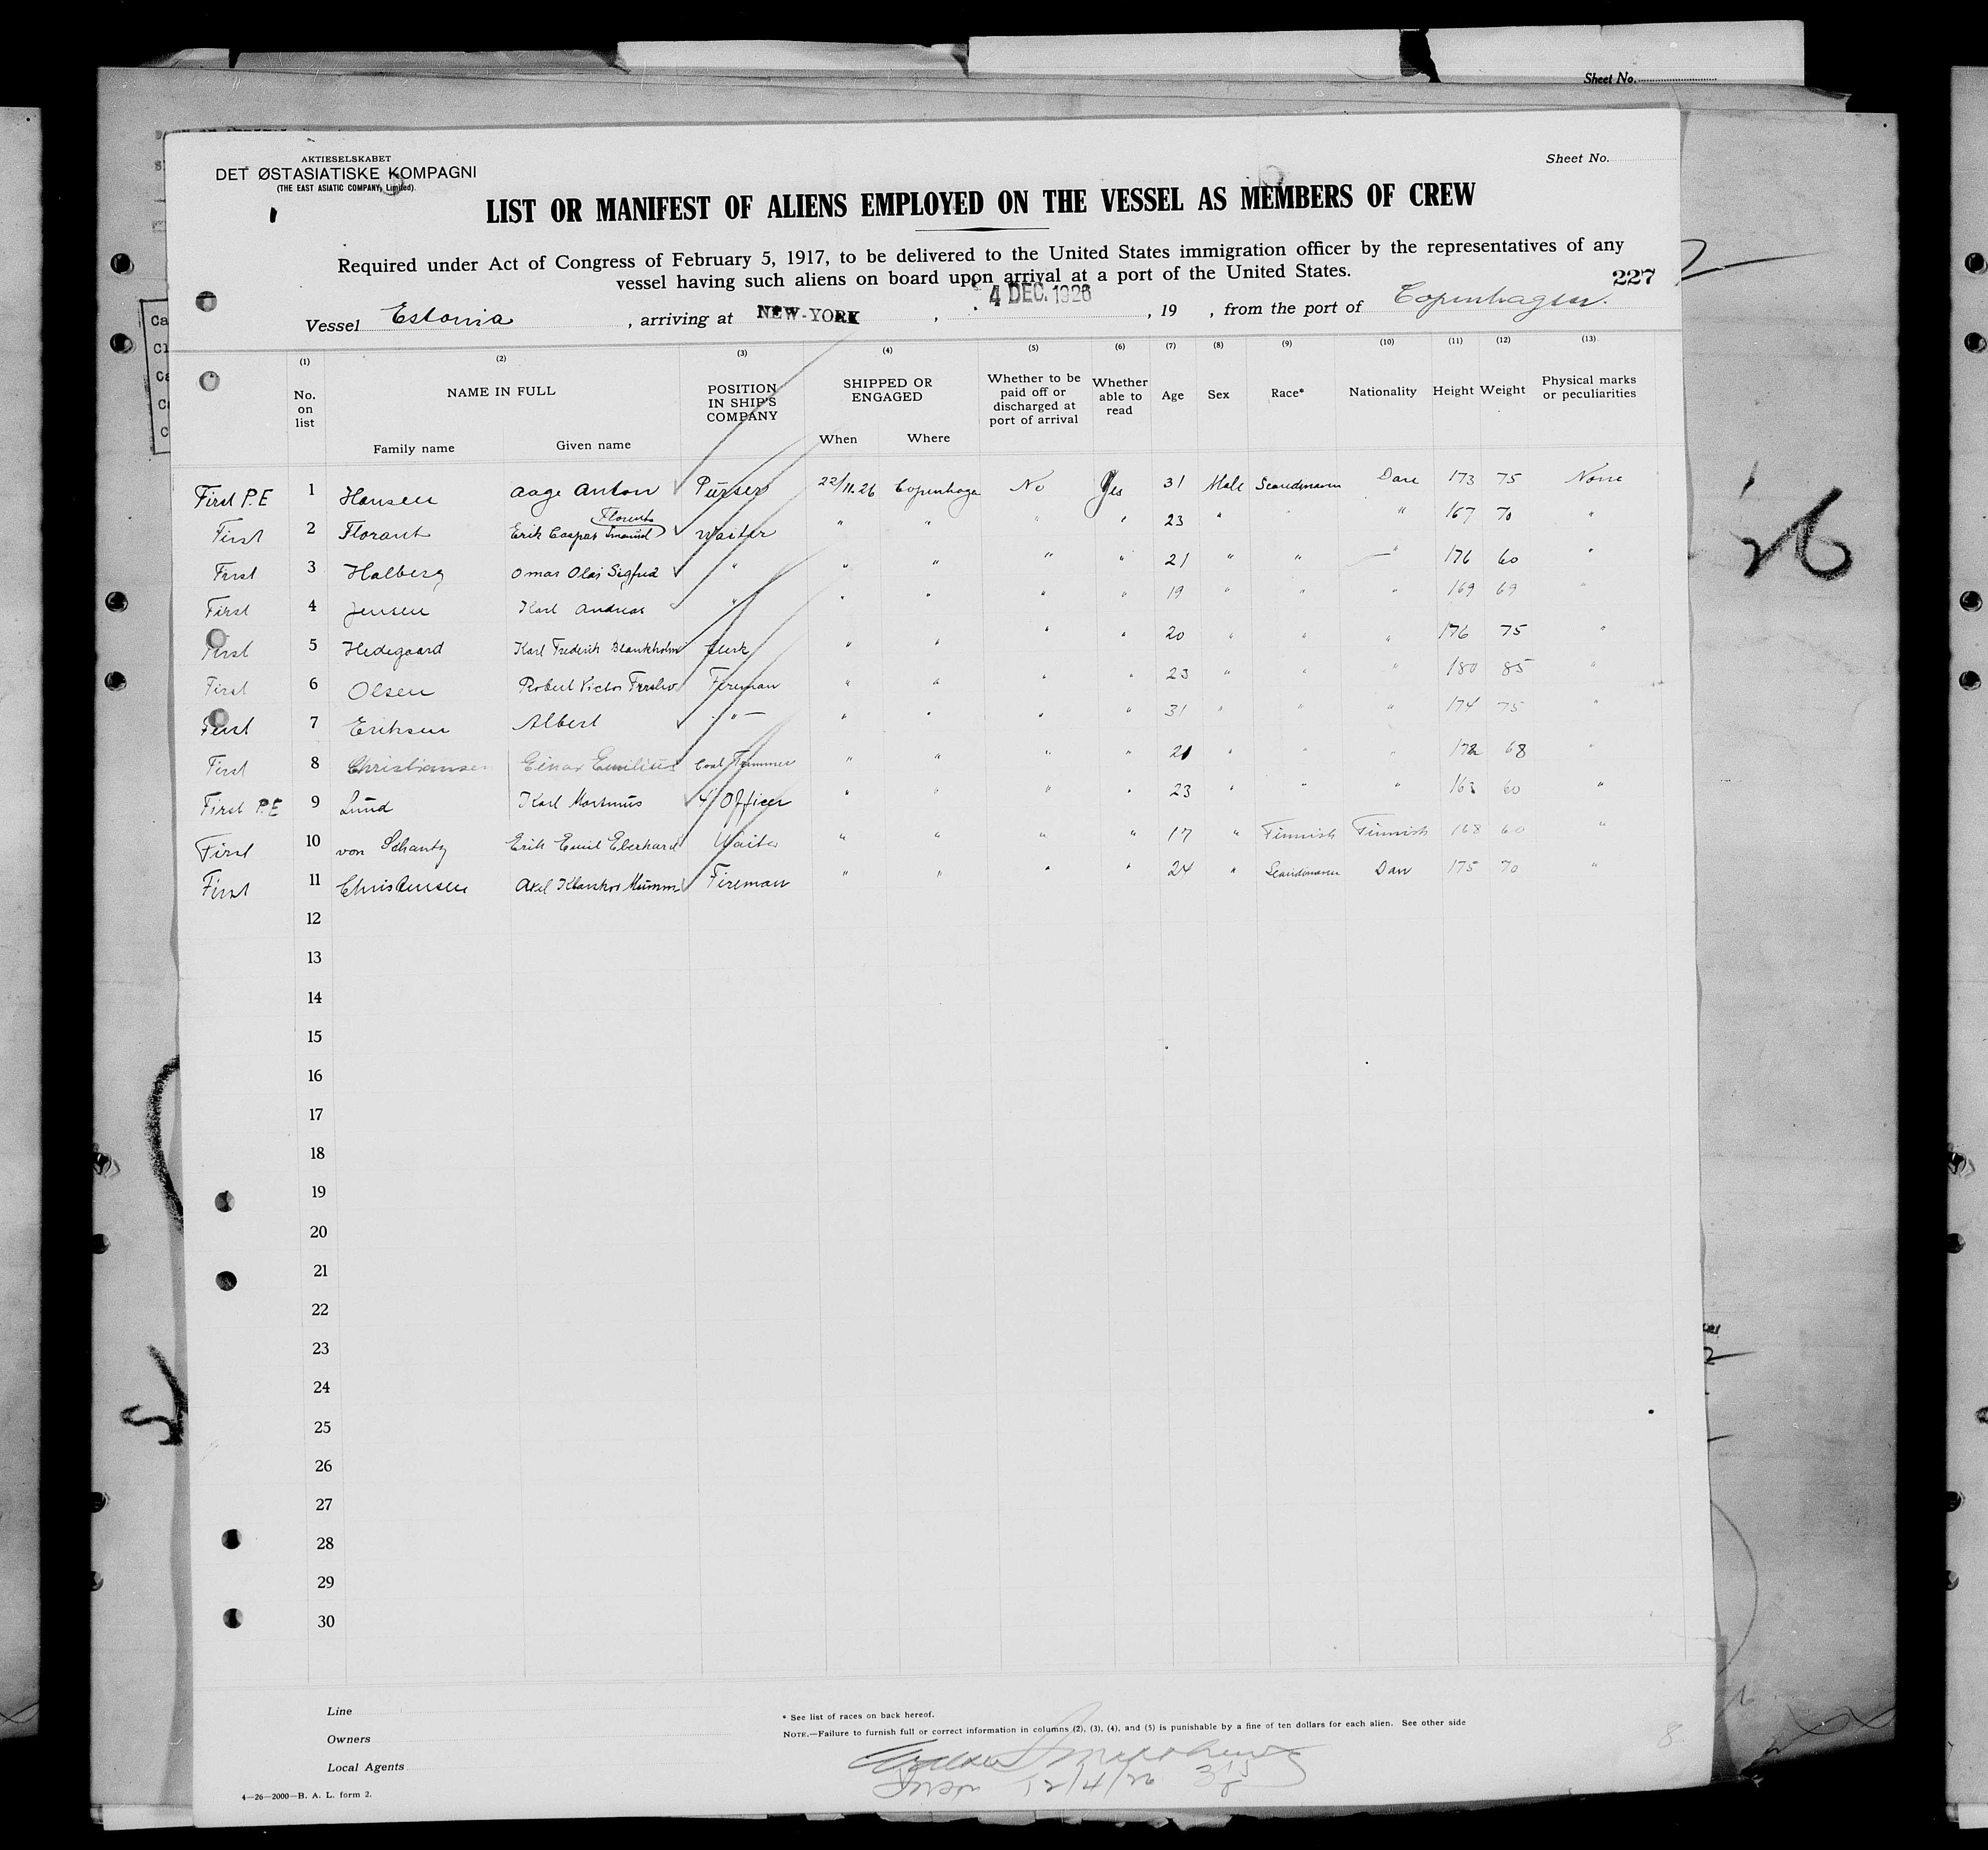 Sheet No.
AKTIESELSKABET
DET ØSTASIATISKE KOMPAGNI
(THE EAST ASIATIC COMPANY, Limited).
Sheet No.
LIST OR MANIFEST OF ALIENS EMPLOYED ON THE VESSEL AS MEMBERS OF CREW
Required under Act of Congress of February 5, 1917, to be delivered to the United States immigration officer by the representatives of any
vessel having such aliens on board upon arrival at a port of the United States.
227
Vessel Estonia, arriving at NEW-YORK, 4 DEC. 1926, 19 , from the port of Copenhagen.
(1) (2) (3) (4) (5) (6) (7) (8) (9) (10) (11) (12) (13)
No. on list NAME IN FULL Family name Given name POSITION IN SHIP'S COMPANY SHIPPED OR ENGAGED When Where Whether to be paid off or discharged at port of arrival Whether able to read Age Sex Race* Nationality Height Weight Physical marks or peculiarities
First P.E 1 Hansen Aage Anton Purser 22/11.26 Copenhage No Yes 31 Male Scandinavn Dane 173 75 None
First 2 Florant Erik Caspar " " " " 23 " " " 167 70 "
Waiter
First 3 Halberg Omar Olaf Sigfred " " " " " 21 " " " 176 60 "
First 4 Jensen Karl Andreas " " " " " 19 " " " 169 69 "
First 5 Hedegaard Karl Frederik Blankholm Clerk " " " " 20 " " " 176 75 "
First 6 Olsen Robert Victor Fireman " " " " 23 " " " 180 85 "
First 7 Eriksen Albert " " " " " 31 " " " 174 75 "
First 8 Christiansen Einar Emilius Coal Trimmer " " " " 21 " " " 172 68 "
First P.E 9 Lund Karl Martinus 4/ Officer " " " " 23 " " " 163 60 "
First 10 von Schantz Erik Emil Eberhard Waiter " " " " 17 " Finnish Finnish 168 60 "
First 11 Christensen Axel Fireman " " " " 24 " Scandinavn Dan 175 70 "
12
13
14
15
16
17
18
19
20
21
22
23
24
25
26
27
28
29
30
Line
Owners
Local Agents
4—26—2000—B. A. L. form 2.
* See list of races on back hereof.
NOTE.—Failure to furnish full or correct information in columns (2), (3), (4), and (5) is punishable by a fine of ten dollars for each alien. See other side
12/4/26
8
26